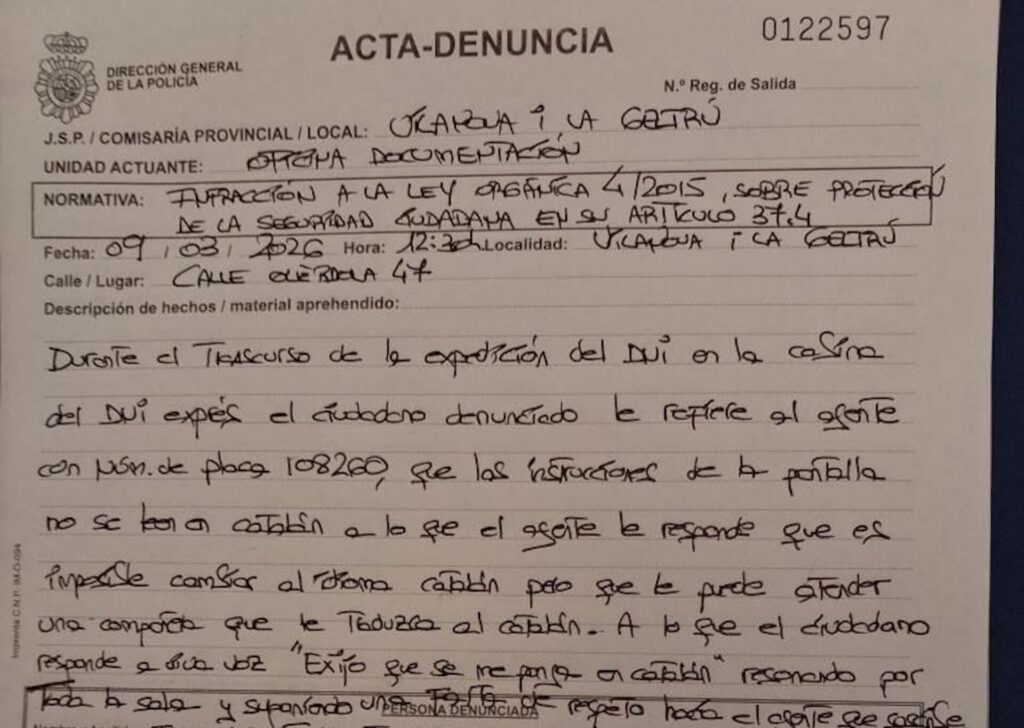 ACTA-DENUNCIA
0122597
DIRECCIÓN GENERAL
DE LA POLICÍA
N.º Reg. de Salida
J.S.P. / COMISARÍA PROVINCIAL / LOCAL: VILANOVA i LA GELTRÚ
UNIDAD ACTUANTE: OFICINA DOCUMENTACIÓN
NORMATIVA: INFRACCIÓN A LA LEY ORGÁNICA 4/2015, SOBRE PROTECCIÓN
DE LA SEGURIDAD CIUDADANA EN SU ARTÍCULO 37.4
Fecha: 09 / 03 / 2026 Hora: 12:30h Localidad: VILANOVA i LA GELTRÚ
Calle / Lugar: CALLE OLÈRDOLA 47
Descripción de hechos / material aprehendido:
Durante el Trascurso de la expedición del DNI en la cabina
del DNI exprés el ciudadano denunciado le refiere al agente
con Núm. de placa 108260, que las instrucciones de la pantalla
no se leen en catalán a lo que el agente le responde que es
imposible cambiar al idioma catalán pero que le puede atender
una compañera que le Traduzca al catalán. A lo que el ciudadano
responde a viva voz "Exijo que se me ponga en catalán" resonando por
Toda la sala y suponiendo una falta de respeto hacia el agente que
PERSONA DENUNCIADA
Imprenta C.N.P. IM-O-094